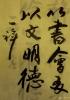 以書會友
以文明德